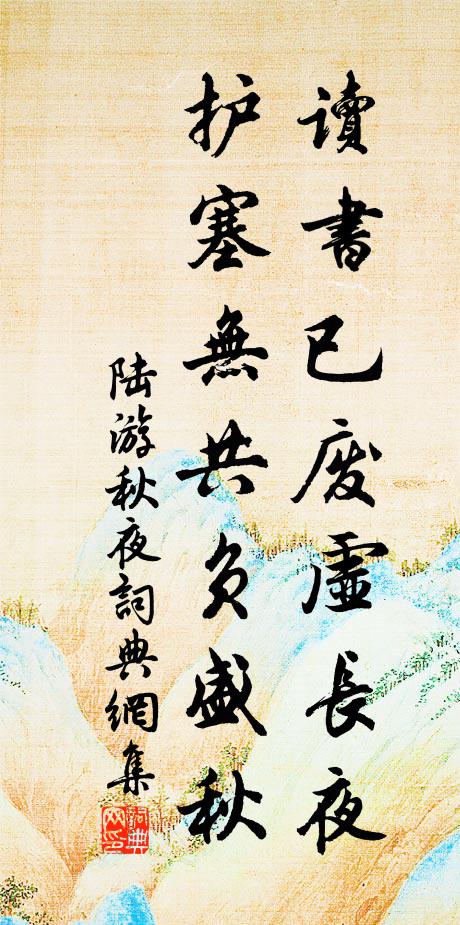 讀書已废虛長夜
护塞無共負盛秋
陆游秋夜詞典網集
詞典